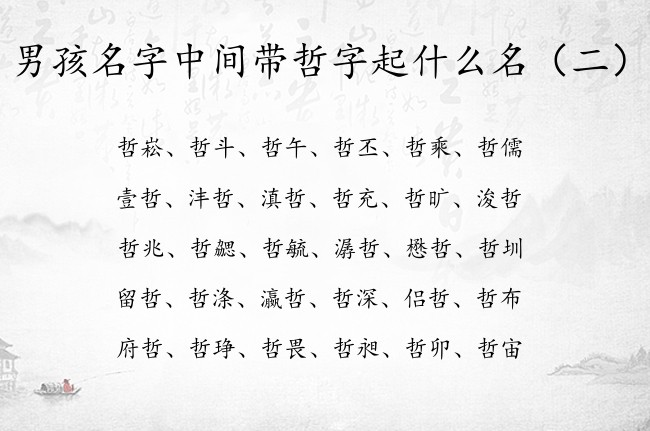 男孩名字中间带哲字起什么名（二）
哲崧、哲斗、哲午、哲丕、哲乘、哲儒
壹哲、沣哲、滇哲、哲充、哲旷、浚哲
哲兆、哲勰、哲毓、潺哲、懋哲、哲圳
留哲、哲涤、瀛哲、哲深、侣哲、哲布
府哲、哲琤、哲畏、哲昶、哲卯、哲宙